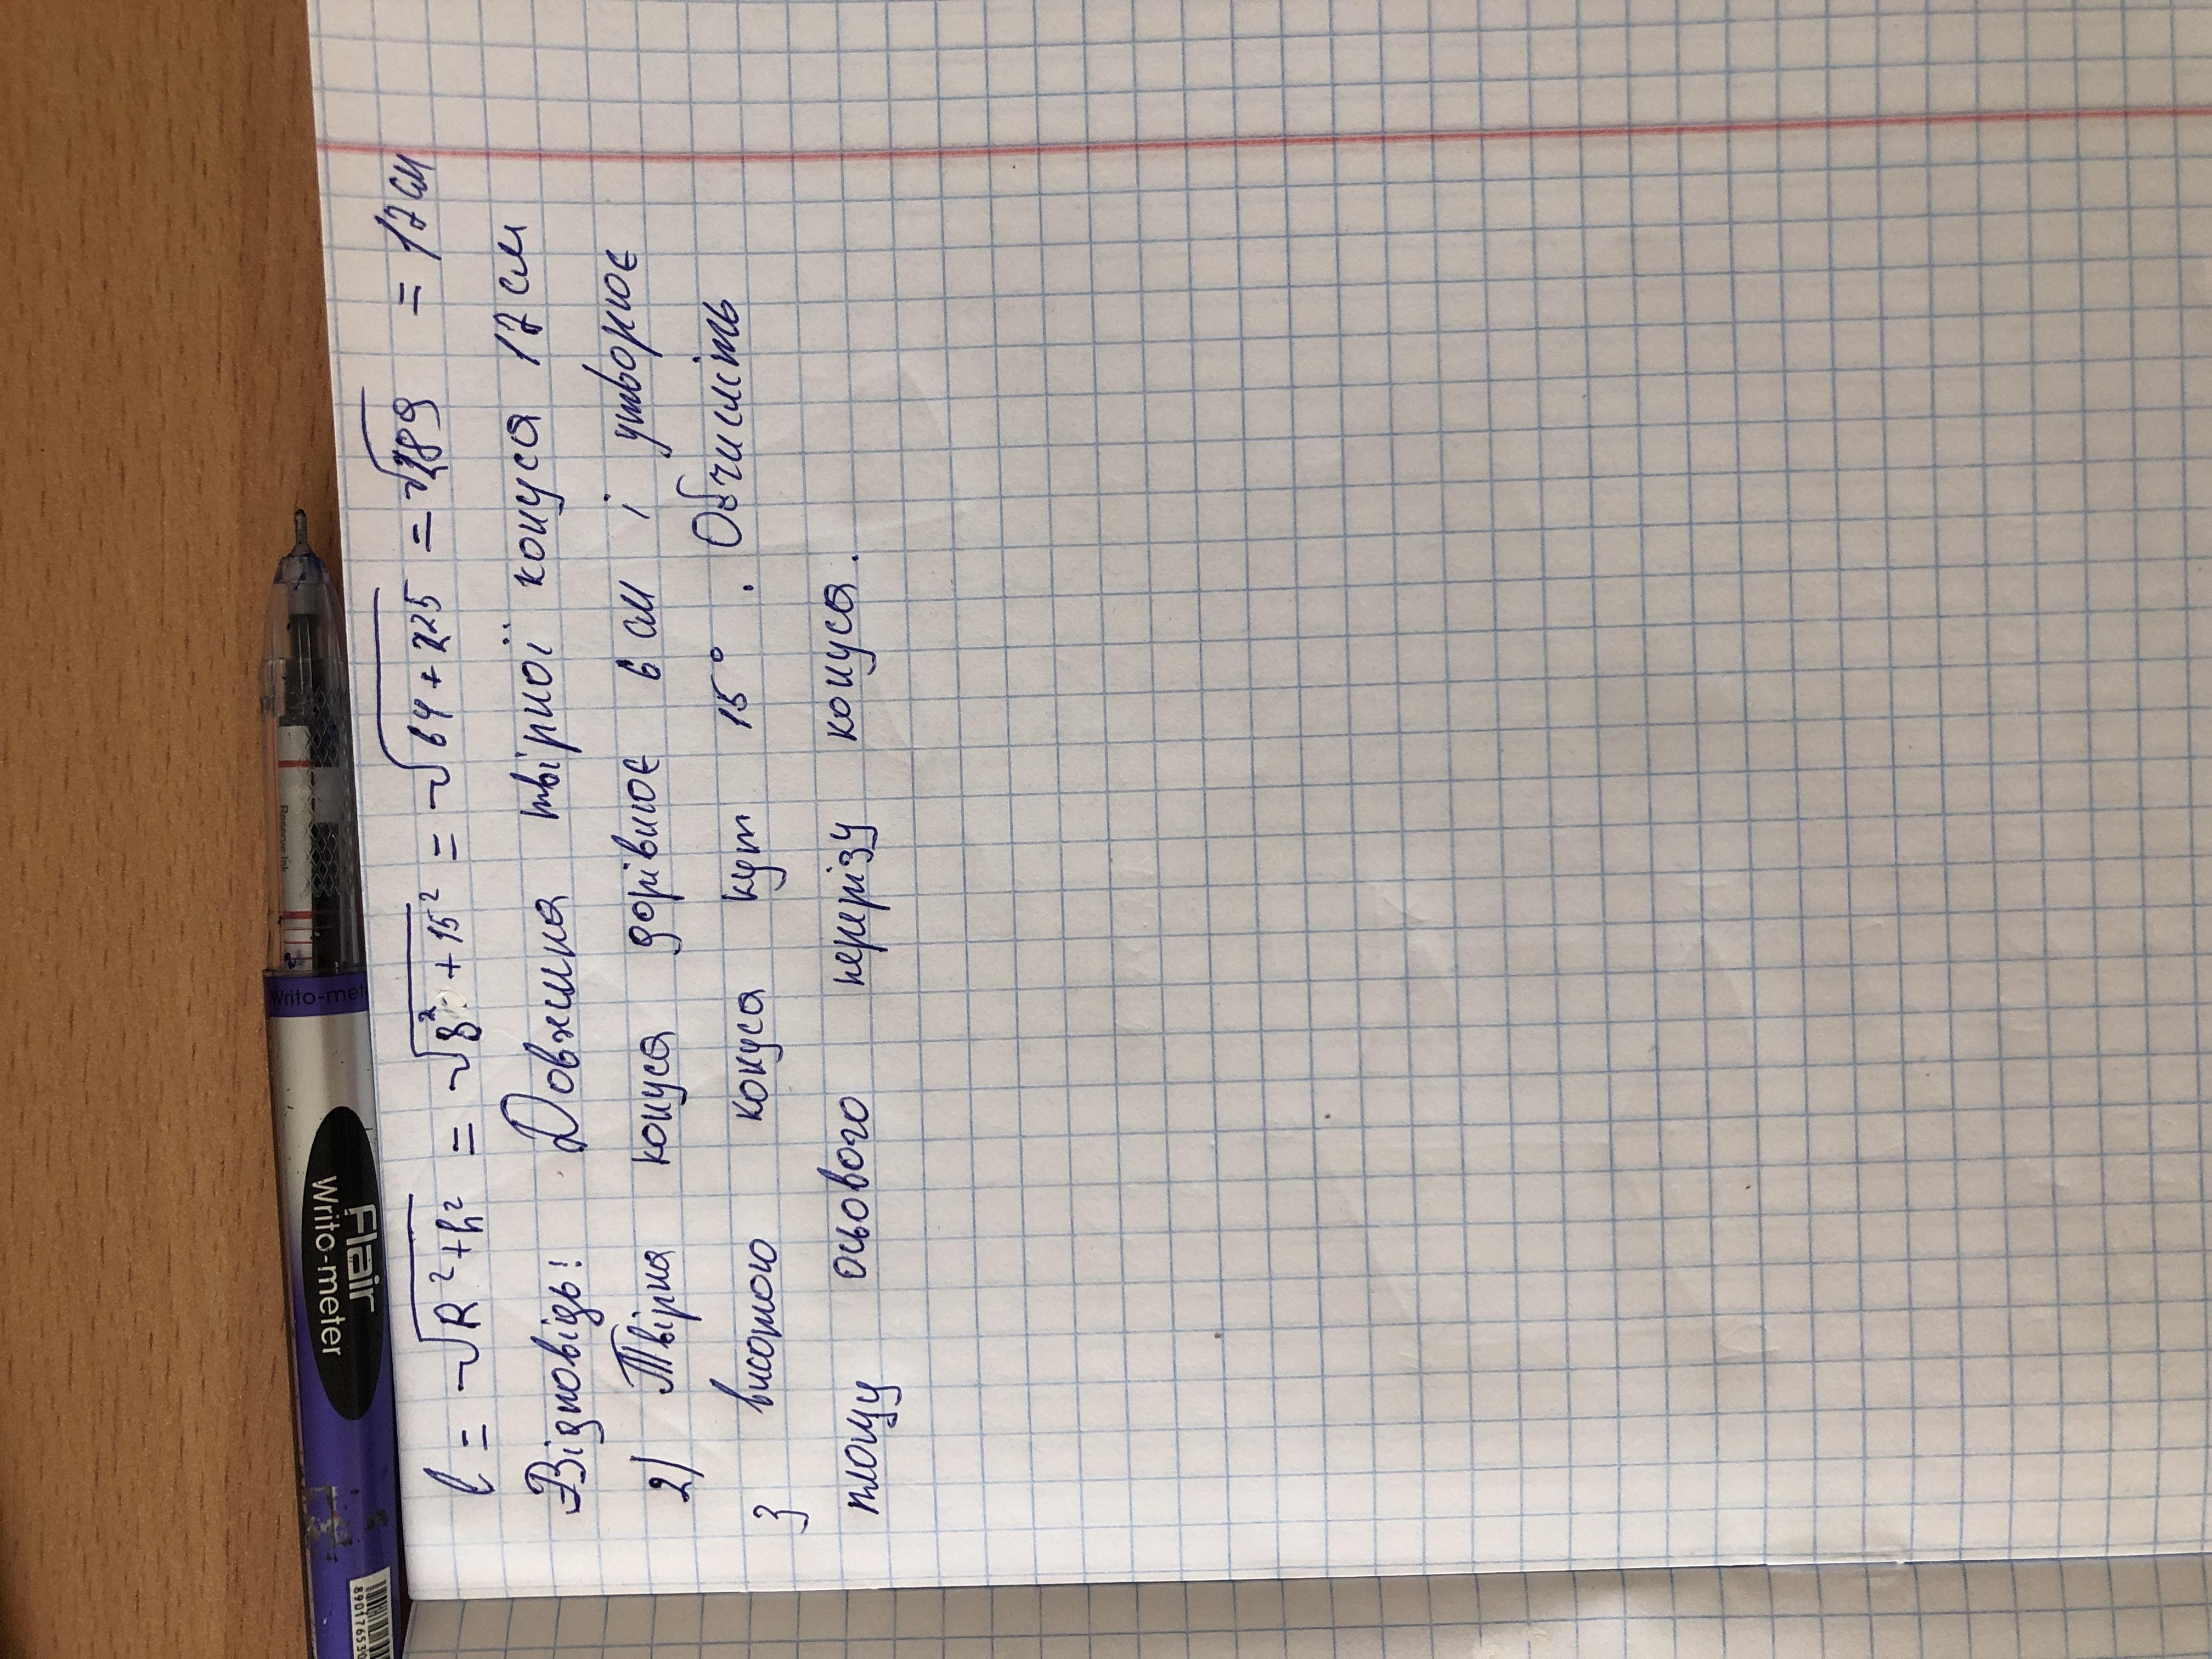 l = √R²+h² = √8²+15² = √64+225 = √289 = 17 см
Відповідь: Довжина твірної конуса 17 см
2) Твірна конуса дорівнює 6 см і утворює
з висотою конуса кут 15°. Обчисліть
площу осьового перерізу конуса.
Flair
Writo-meter
Writo-met